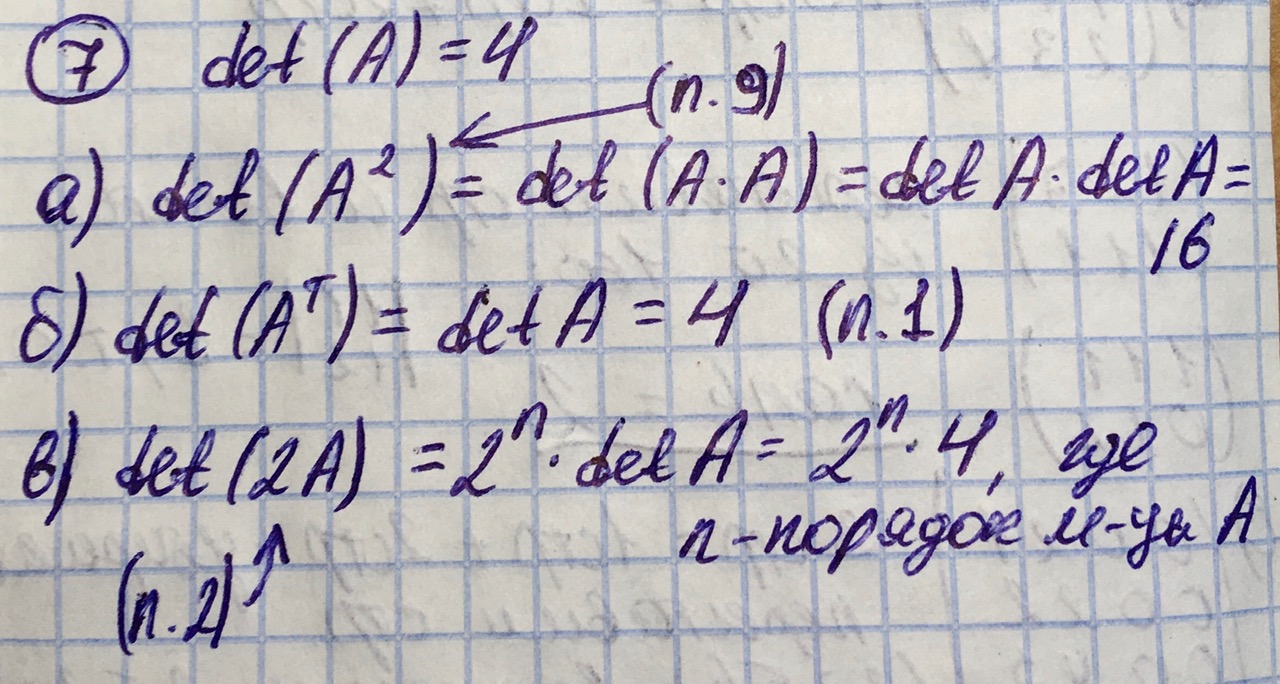 ⑦ det(A)=4
(п.9)
а) det(A²)= det(A·A)=det A·det A=
16
б) det(Aᵀ)= det A=4 (п.1)
в) det(2A) =2ⁿ·det A=2ⁿ·4, где
n-порядок м-цы A
(п.2)